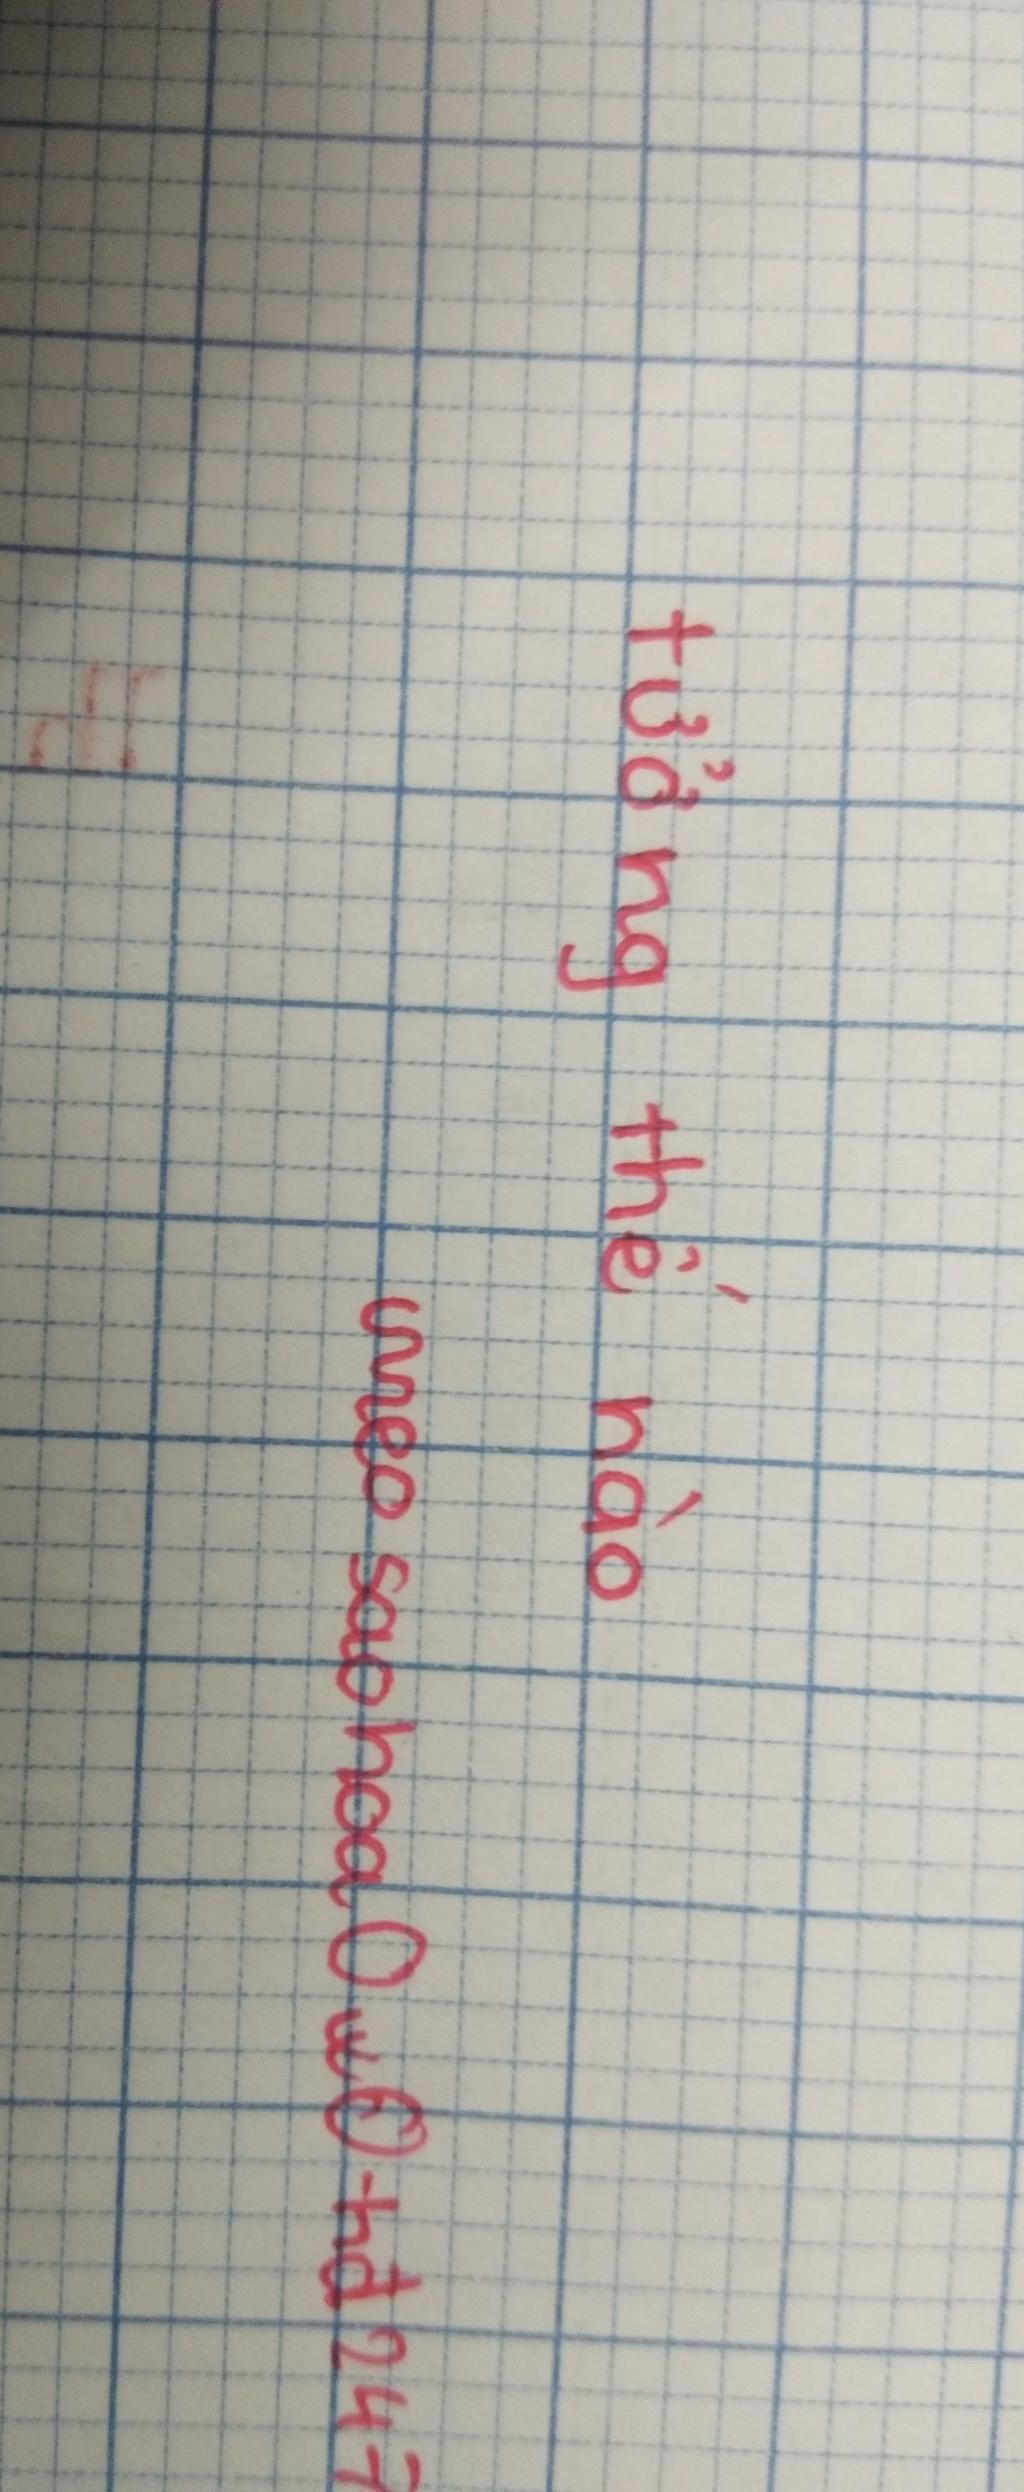 tưởng thế nào
meo saohoaOwO-hđ247